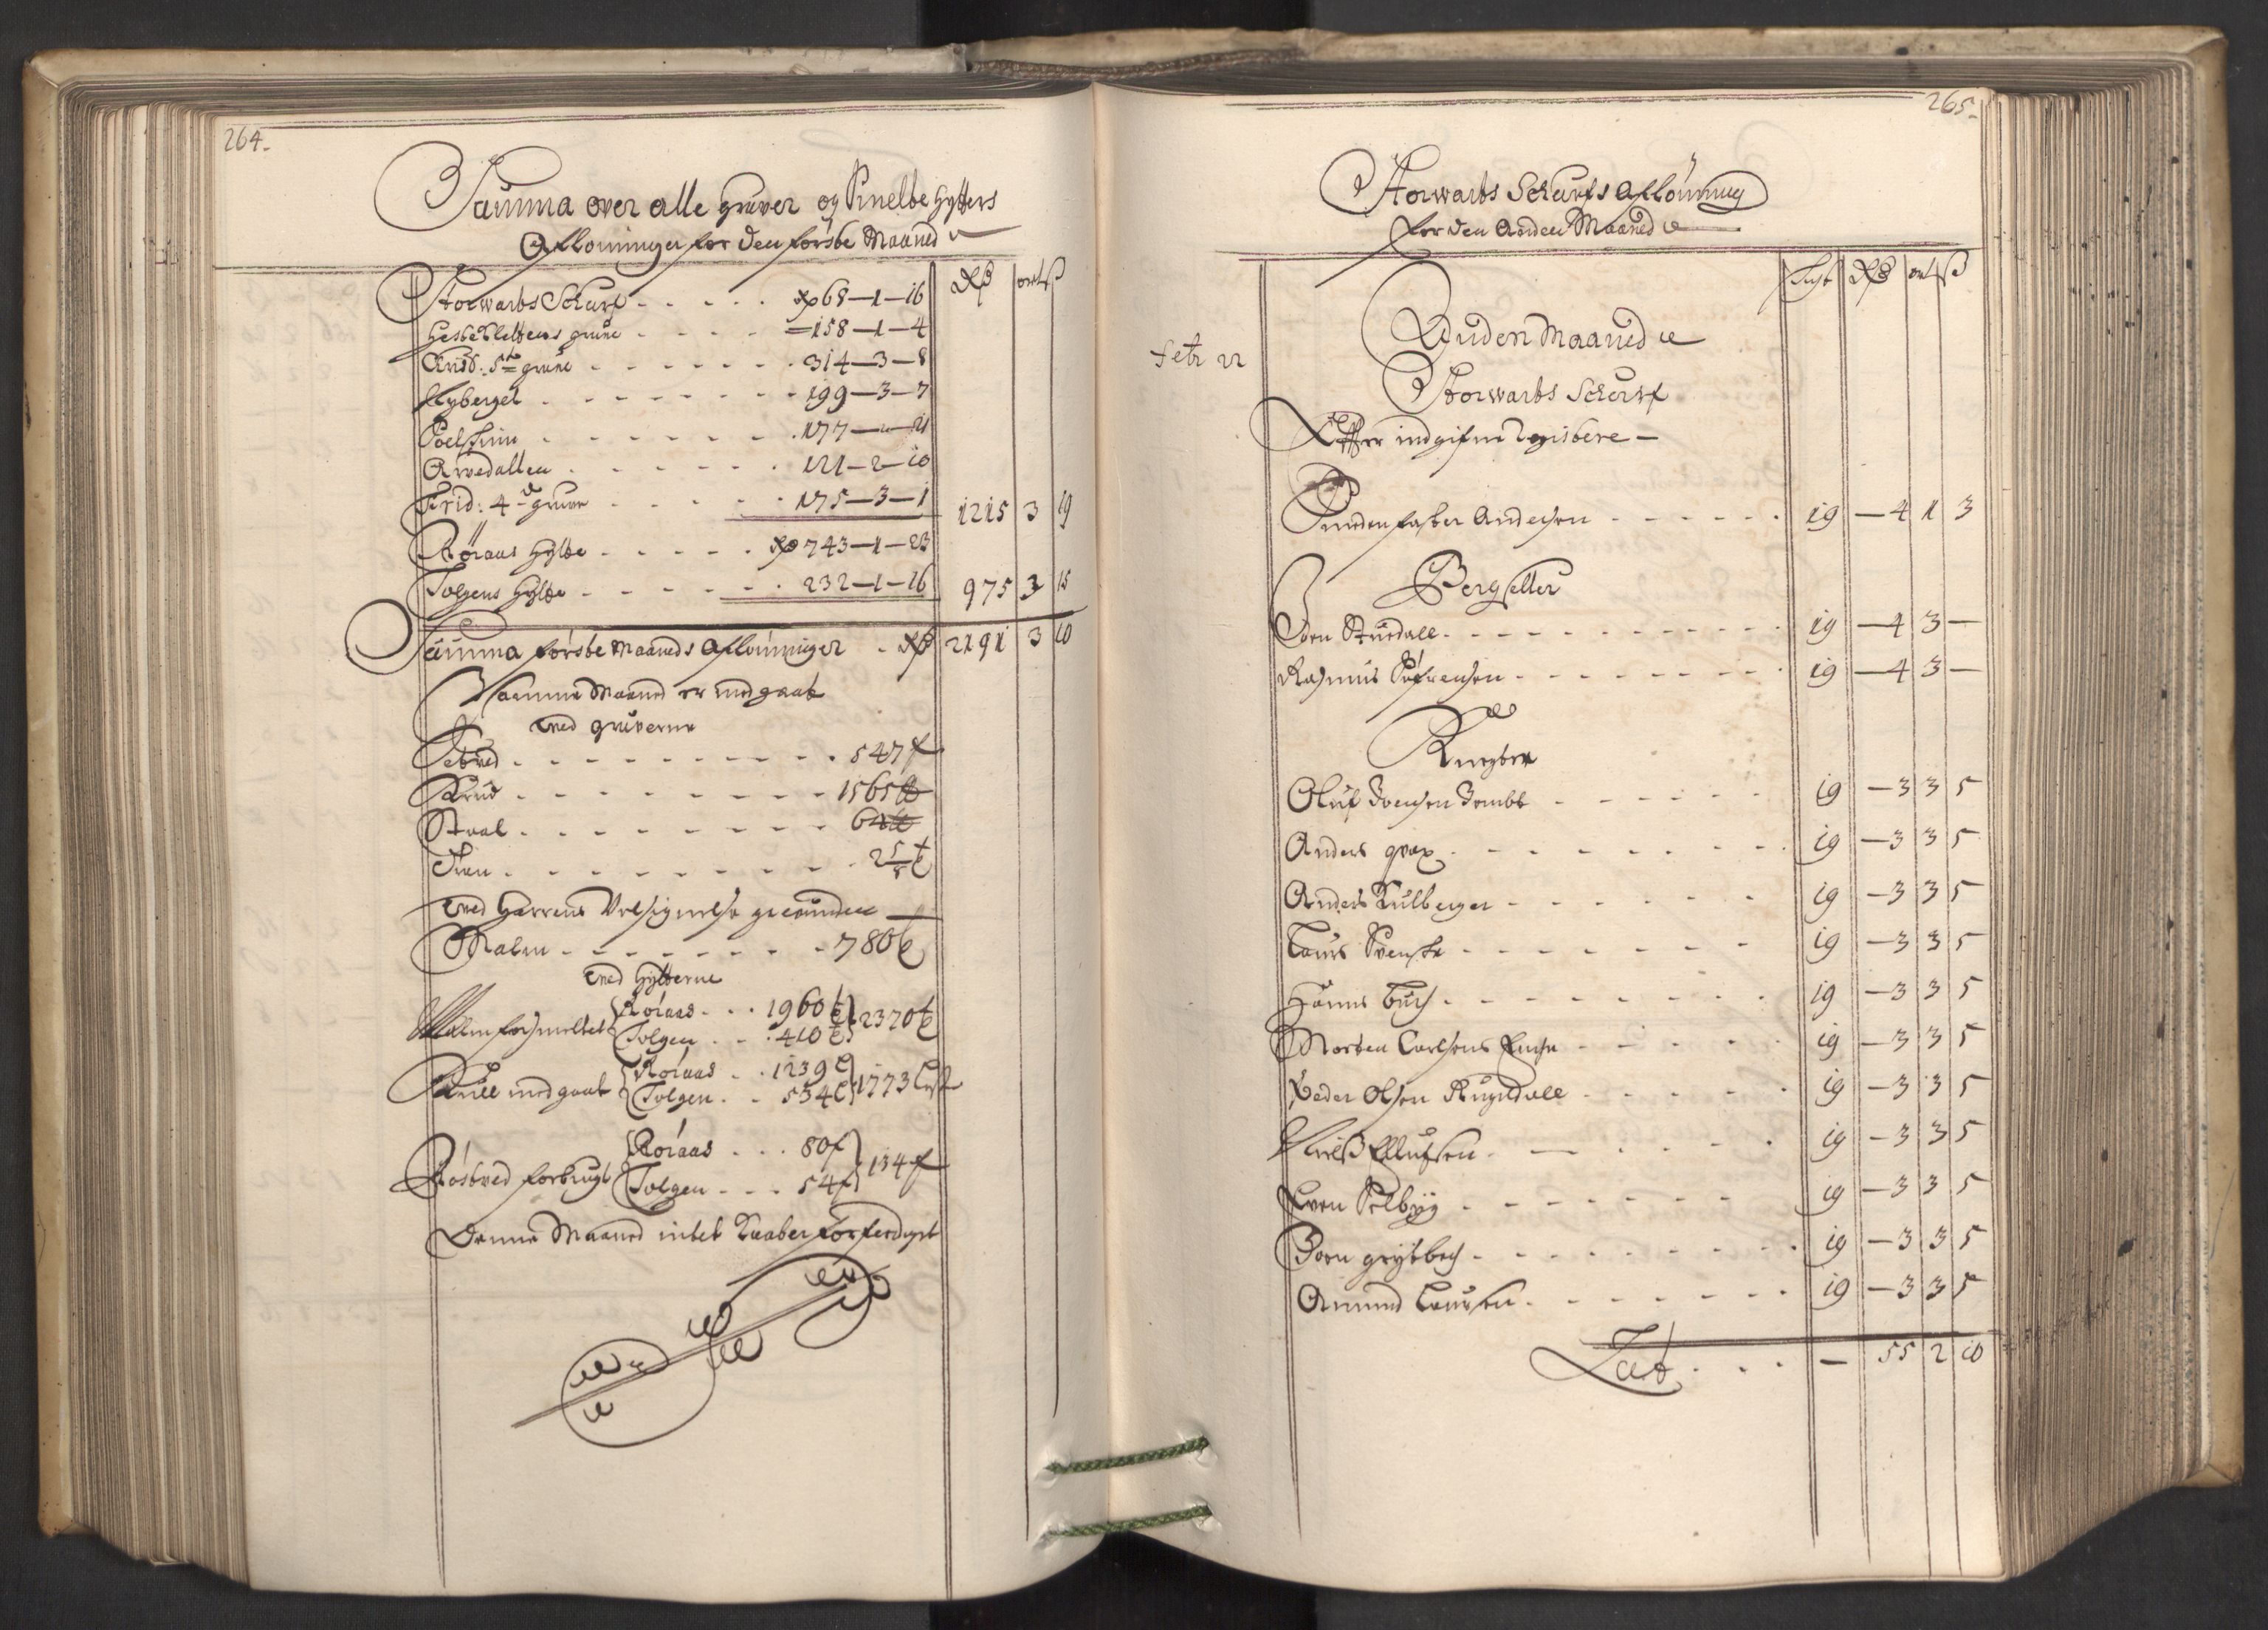 264.
Summa over alle gruver og Smelte Hytters
Afloninger for den første Maaned
Rd ort ß
Storwarts Schurf - - - - - Rd 68 - 1 - 16
Hesteklettens grube - - - - 158 - 1 - 4
Christ: 5te grube - - - - - - 314 - 3 - 8
Nyberget - - - - - - - 199 - 3 - 7
- - - - - - 177 - " - 21
Arvedallen - - - - - - 121 - 2 - 10
Frid: 4de grube - - - - - 175 - 3 - 1 1215 3 19
Röraas Hytte - - - - - Rd 743 - 1 - 23
Tolgens Hytte - - - - - - 232 - 1 - 16 975 3 15
Summa første Maaneds Aflønninger - Rd 2191 3 10
Maaned er medgaaet
ved gruverne
Setved - - - - - - - - - - 547 f
Krud - - - - - - - - 1565 lb
Staal - - - - - - - - -
- - - - - - - - - 2 5/8 t
Ved Herrens Velsignelse gevunden
Malm - - - - - - - - 780 t
Ved Hytterne
Malm forsmeltet Röraas - - - 1960 t
Tolgen - - - 410 t 2370 t
Kull medgaaet Röraas - - 1239 L
Tolgen - - 534 L 1773 Lest
Röstved forbrugt Röraas - - - 80 f
Tolgen - - - 54 f 134 f
Denne Maaned intet Kaaber forferdiget
265.
Storwarts Schurfs Aflönning
for den Anden Maaned
Rd ort ß
Febr 22
Anden Maaned
Storwarts Schurf
Efter indgifne Registere -
Andersen - - - - - - 19 - 4 1 3
Bergseller
Joen Stuedall - - - - - - - - - 19 - 4 3 -
Rasmus Søfrensen - - - - - - - - 19 - 4 3 -
Knegter
Oluf Joensen - - - - - 19 - 3 3 5
Anders - - - - - - - - - 19 - 3 3 5
Anders Kulberger - - - - - - - 19 - 3 3 5
Laurs Svenske - - - - - - - 19 - 3 3 5
Hanns Buch - - - - - - - - 19 - 3 3 5
Morten Carlsens - - - - - 19 - 3 3 5
Peder Olsen Rugldall - - - - - 19 - 3 3 5
Nielß Ellufsen - - - - - 19 - 3 3 5
Even Selbyg - - - - - - - 19 - 3 3 5
Joen grytbach - - - - - - - - - 19 - 3 3 5
Amund Laursen - - - - - - - 19 - 3 3 5
Lat - - - - 55 2 10